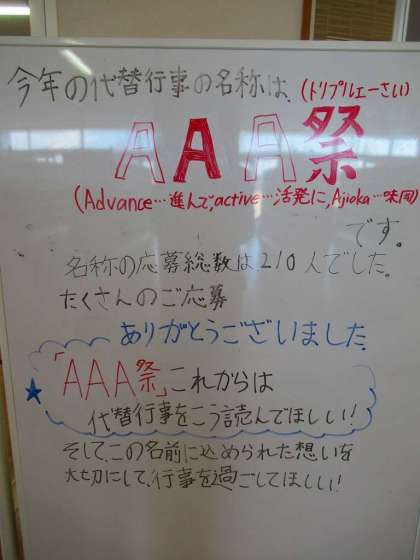 今年の代替行事の名称は、(トリプルエーさい)
AAA祭
(Advance…進んで,active…活発に,Ajioka…味岡)
です。
名称の応募総数は210人でした。
たくさんのご応募
ありがとうございました。
「AAA祭」これからは
代替行事をこう読んでほしい!
そして、この名前に込められた想いを
大切にして、行事を過ごしてほしい!